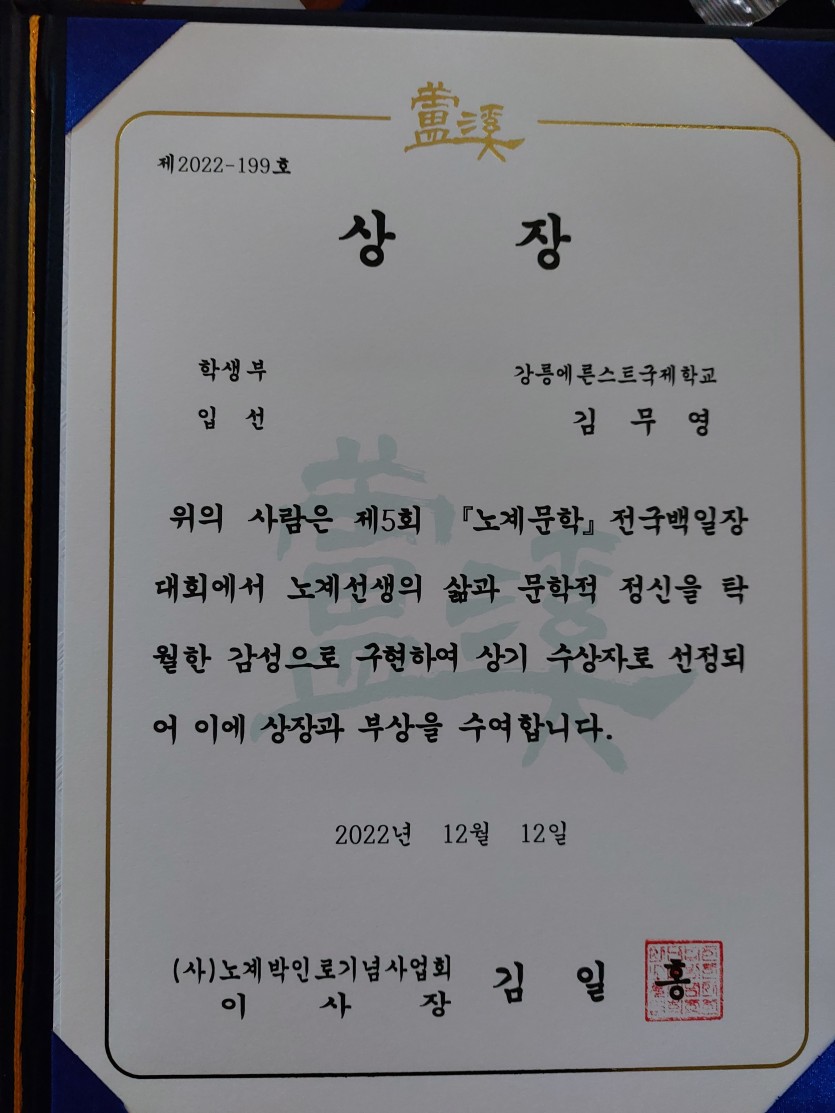 蘆溪
제2022-199호
상 장
학생부 강릉에른스트국제학교
입 선 김 무 영
위의 사람은 제5회 『노계문학』 전국백일장
대회에서 노계선생의 삶과 문학적 정신을 탁
월한 감성으로 구현하여 상기 수상자로 선정되
어 이에 상장과 부상을 수여합니다.
2022년 12월 12일
(사)노계박인로기념사업회 김 일 홍
이 사 장